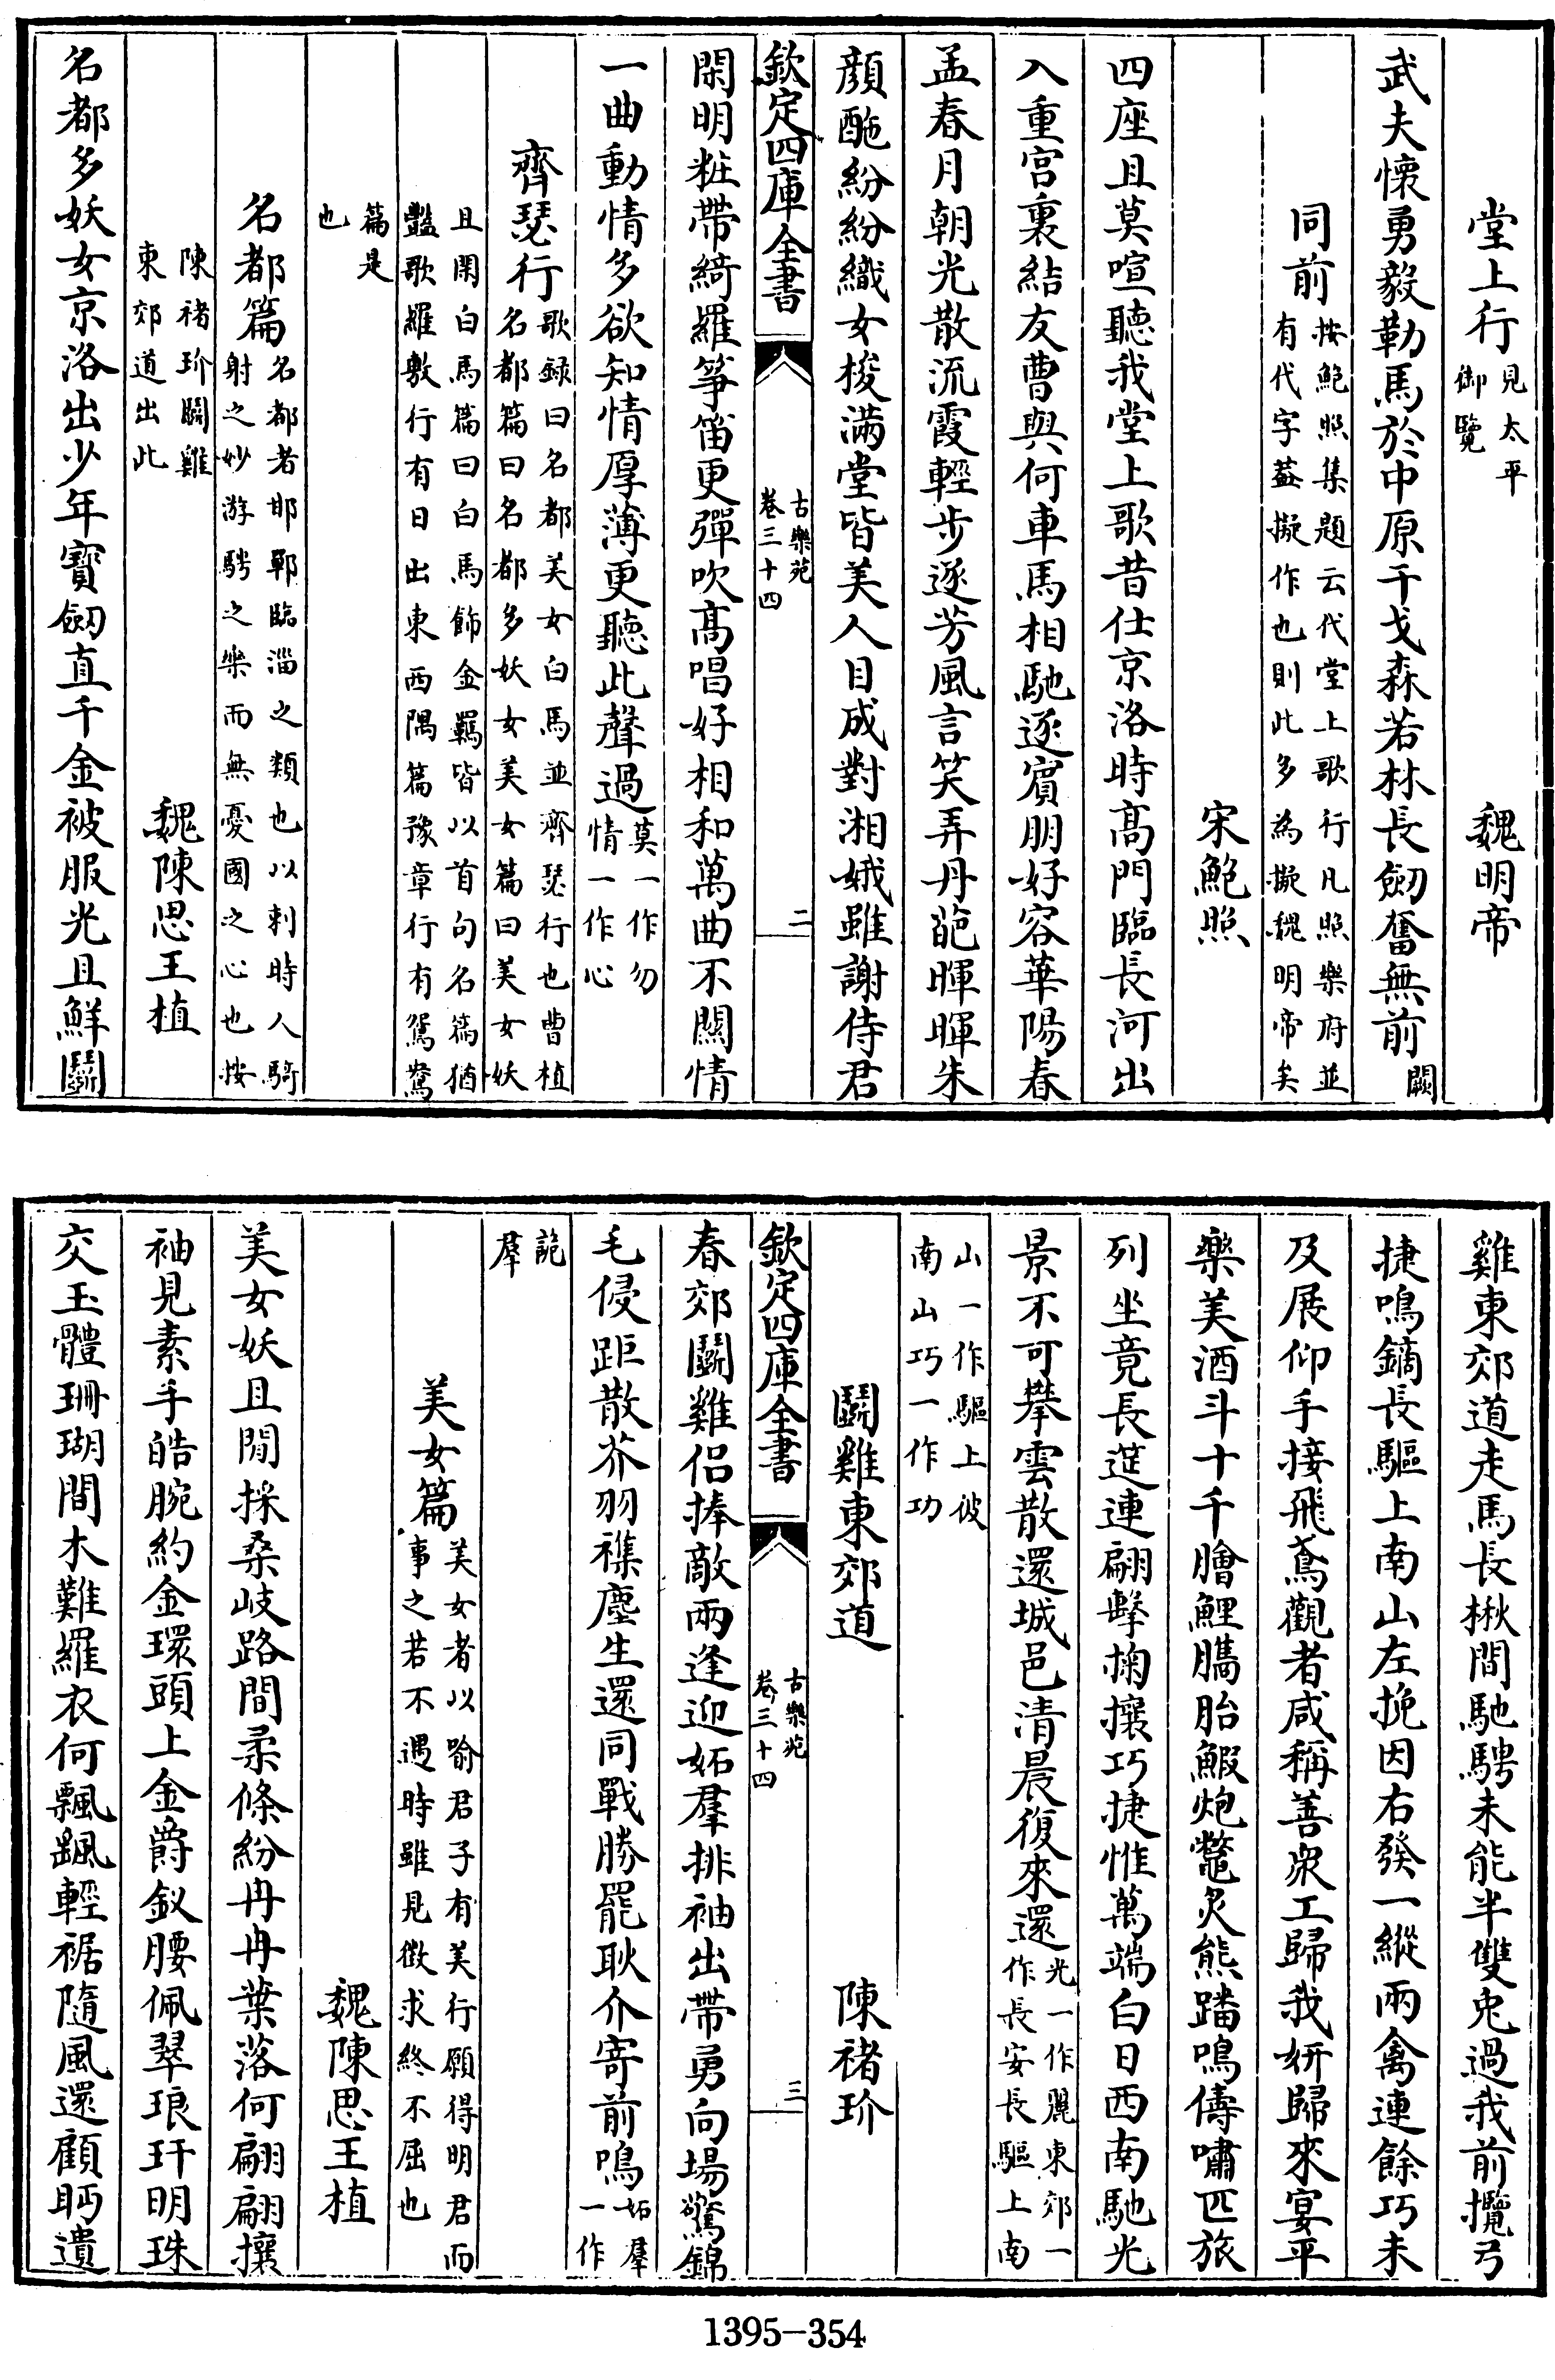 堂上行見太平御覽　魏明帝
武夫懷勇毅勒馬於中原干戈森若林長劒奮無前闕
同前按鮑照集題云代堂上歌行凡照樂府並有代字葢擬作也則此多為擬魏明帝矣
宋鮑照
四座且莫喧聽我堂上歌昔仕京洛時髙門臨長河出
入重宮裏結友曹與何車馬相馳逐賓朋好容華陽春
孟春月朝光散流霞輕步逐芳風言笑弄丹葩暉暉朱
顔酡紛紛織女梭滿堂皆美人目成對湘娥雖謝侍君
欽定四庫全書　古樂苑卷三十四　二
閑明粧帶綺羅箏笛更彈吹髙唱好相和萬曲不關情
一曲動情多欲知情厚薄更聽此聲過莫一作勿情一作心
齊瑟行歌録曰名都美女白馬並齊瑟行也曹植名都篇曰名都多妖女美女篇曰美女妖
且閑白馬篇曰白馬飾金羈皆以首句名篇猶豔歌羅敷行有日出東西隅篇豫章行有鴛鴦
篇是也
名都篇名都者邯鄲臨淄之類也以刺時人騎射之妙游騁之樂而無憂國之心也按
陳褚玠鬬雞東郊道出此　魏陳思王植
名都多妖女京洛出少年寳劒直千金被服光且鮮鬬
雞東郊道走馬長楸間馳騁未能半雙兎過我前攬弓
捷鳴鏑長驅上南山左挽因右發一縱兩禽連餘巧未
及展仰手接飛鳶觀者咸稱善衆工歸我妍歸來宴平
樂美酒斗十千膾鯉臇胎鰕炮鼈炙熊蹯鳴儔嘯匹旅
列坐竟長筵連翩擊掬攘巧捷惟萬端白日西南馳光
景不可攀雲散還城邑清晨復來還光一作麗東郊一作長安長驅上南
山一作驅上彼南山巧一作功
鬬雞東郊道　陳褚玠
欽定四庫全書　古樂苑卷三十四　三
春郊鬬雞侣捧敵兩逢迎妬羣排袖出帶勇向場驚錦
毛侵距散芥羽襍塵生還同戰勝罷耿介寄前鳴妬羣一作
詭羣
美女篇美女者以喻君子有美行願得明君而事之若不遇時雖見徵求終不屈也
魏陳思王植
美女妖且閒採桑岐路間柔條紛冉冉葉落何翩翩攘
袖見素手皓腕約金環頭上金爵釵腰佩翠琅玕明珠
交玉體珊瑚間木難羅衣何飄颻輕裾隨風還顧眄遺
1395-354